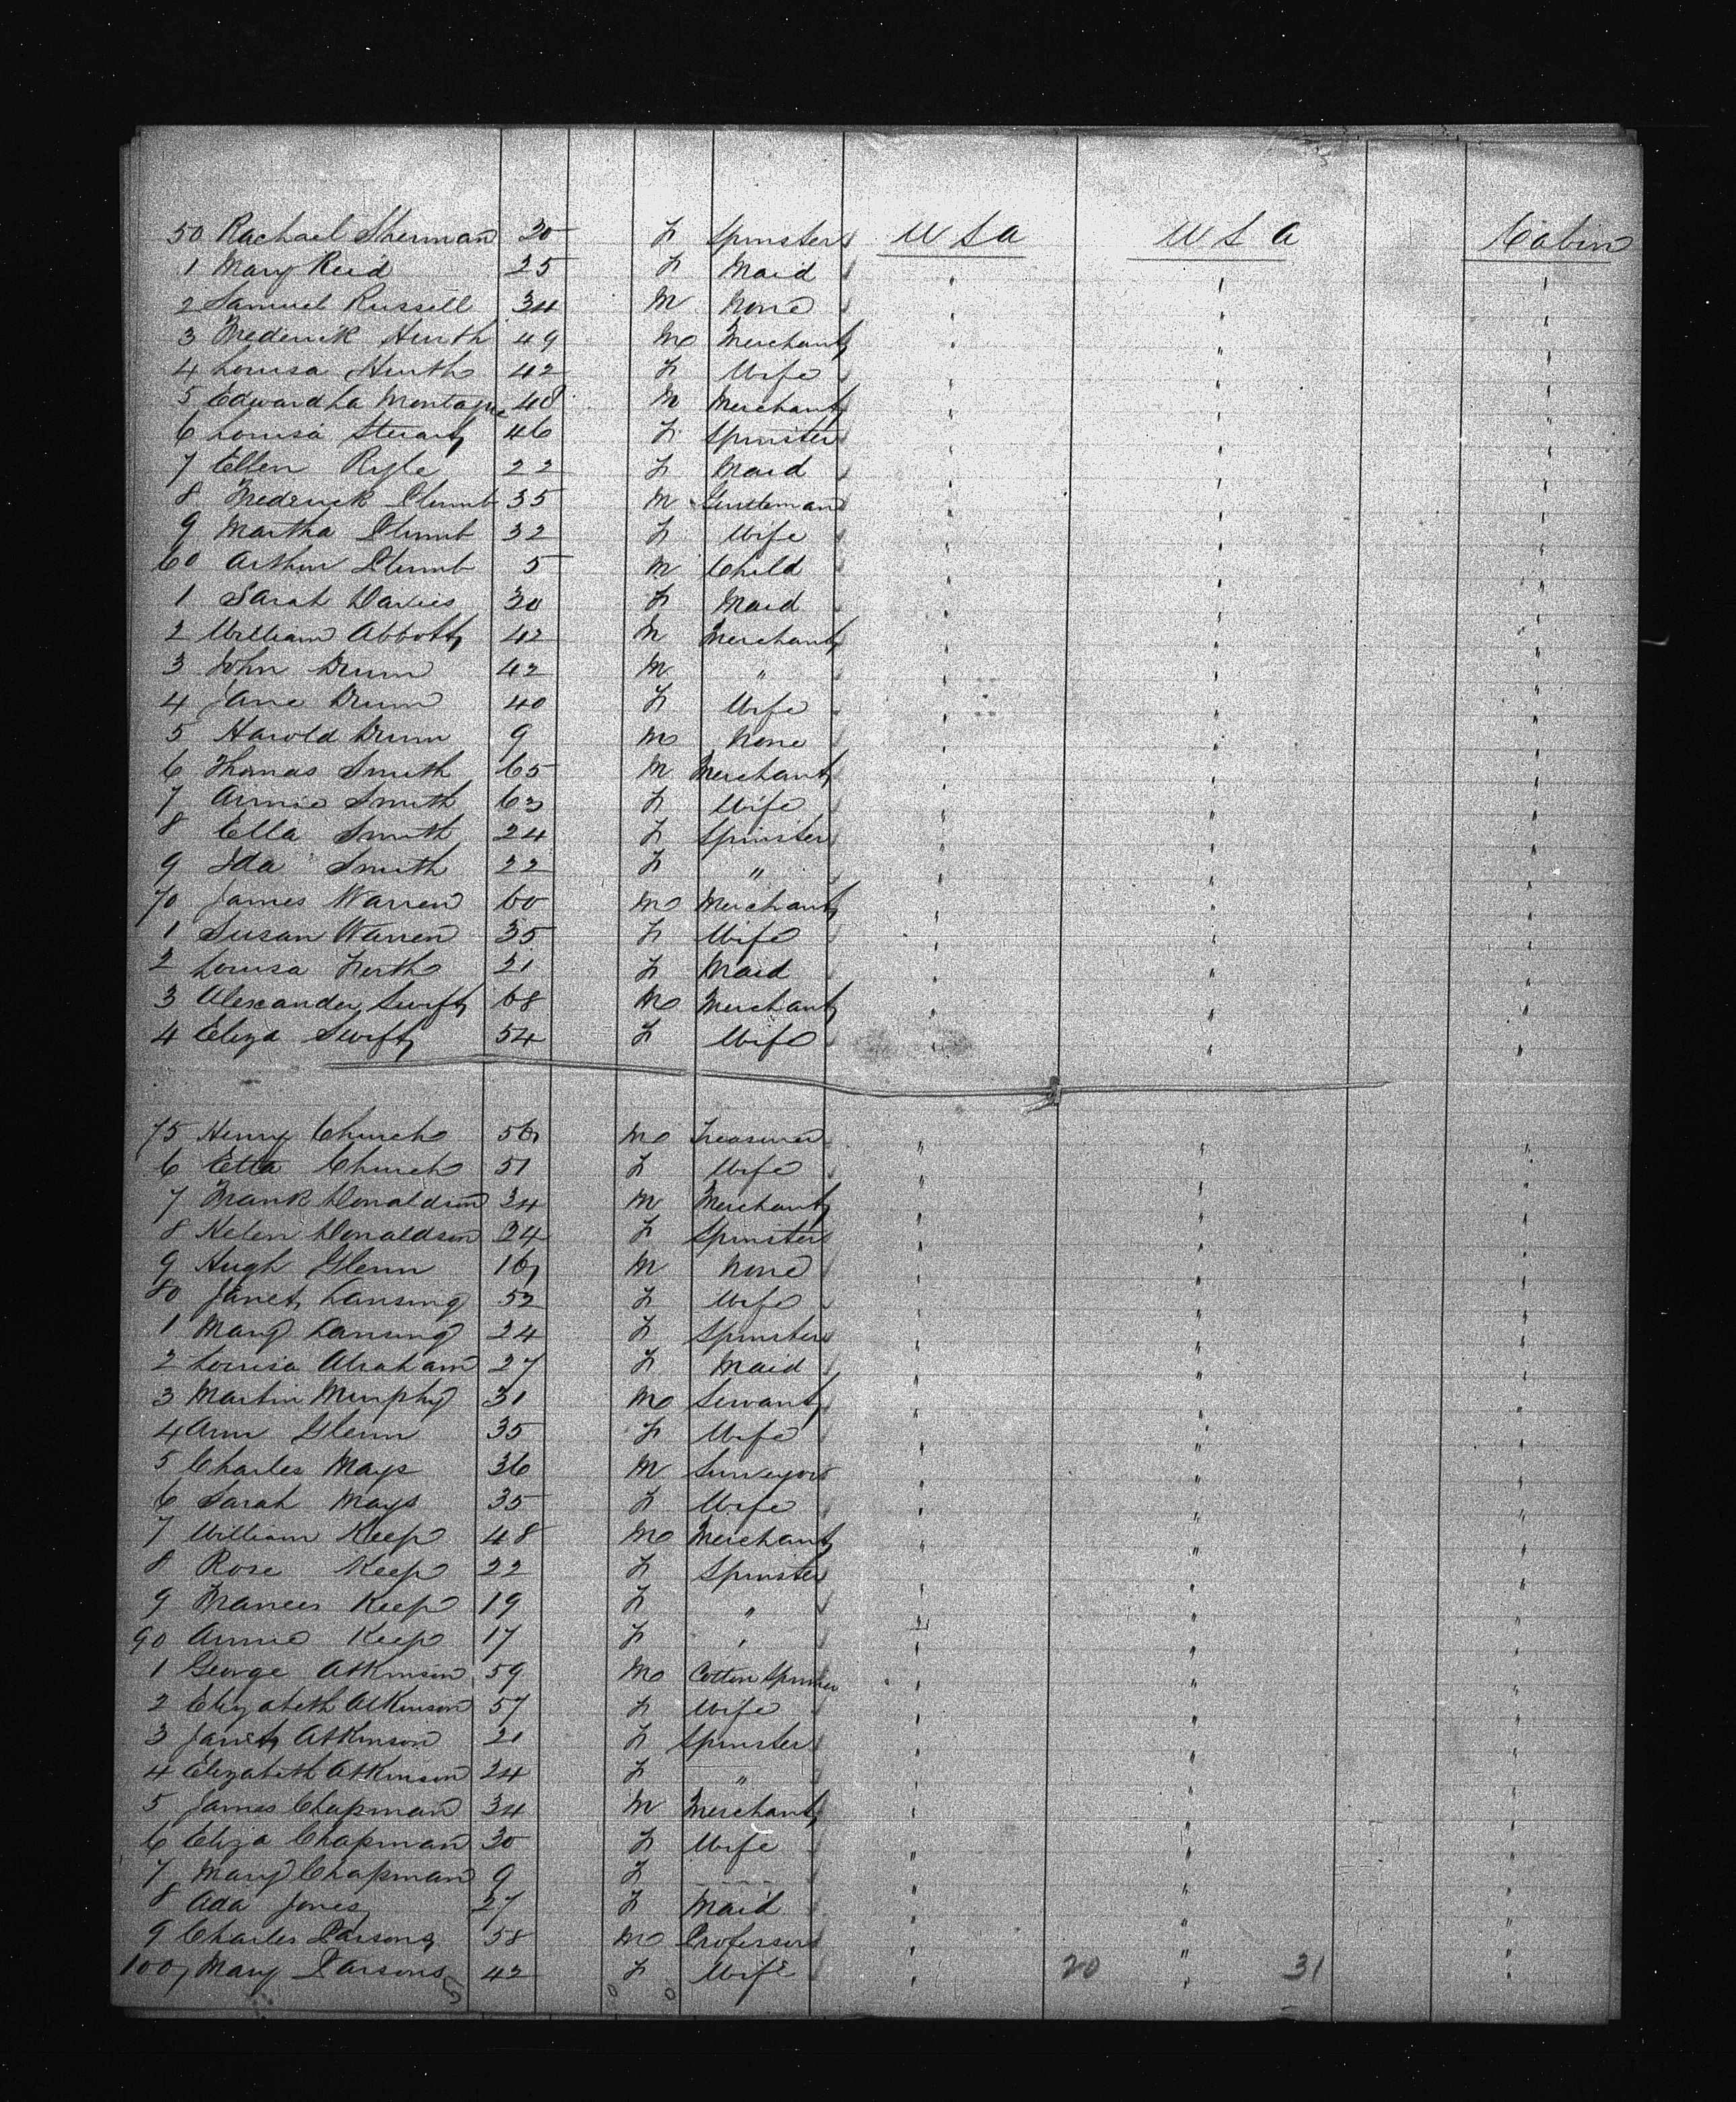 50 Rachael Sherman 30 F Spinster U S A U S A Cabin
1 Mary Reid 25 F Maid " " "
2 Samuel Russell 34 M None " " "
3 Frederick Hirth 49 M Merchant " " "
4 Louisa Hirth 42 F Wife " " "
5 Edward La Montagne 48 M Merchant " " "
6 Louisa Stewart 46 F Spinster " " "
7 Ellen Ryle 22 F Maid " " "
8 Frederick Plumb 35 M Gentleman " " "
9 Martha Plumb 32 F Wife " " "
60 Arthur Plumb 5 M Child " " "
1 Sarah Davies 30 F Maid " " "
2 William Abbott 42 M Merchant " " "
3 John Drum 42 M " " " "
4 Jane Drum 40 F Wife " " "
5 Harold Drum 9 M None " " "
6 Thomas Smith 65 M Merchant " " "
7 Annie Smith 63 F Wife " " "
8 Ella Smith 24 F Spinster " " "
9 Ida Smith 22 F " " " "
70 James Warren 60 M Merchant " " "
1 Susan Warren 35 F Wife " " "
2 Louisa Firth 21 F Maid " " "
3 Alexander Swift 68 M Merchant " " "
4 Eliza Swift 54 F Wife " " "
75 Henry Church 56 M Treasurer " " "
6 Etta Church 51 F Wife " " "
7 Frank Donaldson 34 M Merchant " " "
8 Helen Donaldson 24 F Spinster " " "
9 Hugh Glenn 16 M None " " "
80 Janet Lansing 52 F Wife " " "
1 Mary Lansing 24 F Spinster " " "
2 Louisa Abraham 27 F Maid " " "
3 Martin Murphy 31 M Servant " " "
4 Ann Glenn 35 F Wife " " "
5 Charles Mays 36 M Surveyor " " "
6 Sarah Mays 35 F Wife " " "
7 William Keep 48 M Merchant " " "
8 Rose Keep 22 F Spinster " " "
9 Frances Keep 19 F " " " "
90 Annie Keep 17 F " " " "
1 George Atkinson 59 M Cotton Spinner " " "
2 Elizabeth Atkinson 57 F Wife " " "
3 Janet Atkinson 21 F Spinster " " "
4 Elizabeth Atkinson 24 F " " " "
5 James Chapman 34 M Merchant " " "
6 Eliza Chapman 30 F Wife " " "
7 Mary Chapman 9 F " " "
8 Ada Jones 27 F Maid " " "
9 Charles Parsons 58 M Professor " " "
100 Mary Parsons 42 F Wife " 20 " 31 "